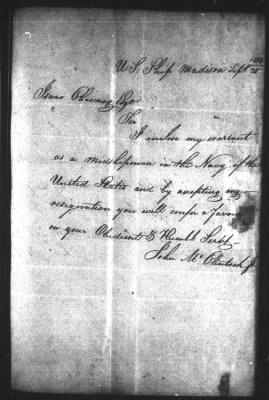 U. S. Ship Madison Sept 25
Isaac Chauncey Esqr
Sir
I enclose my warrant
as a midshipman in the Navy of the
United States and by axcepting my
resignation you will confer a favour
on your Obedient & Humbl Servt
John McChintock Jr